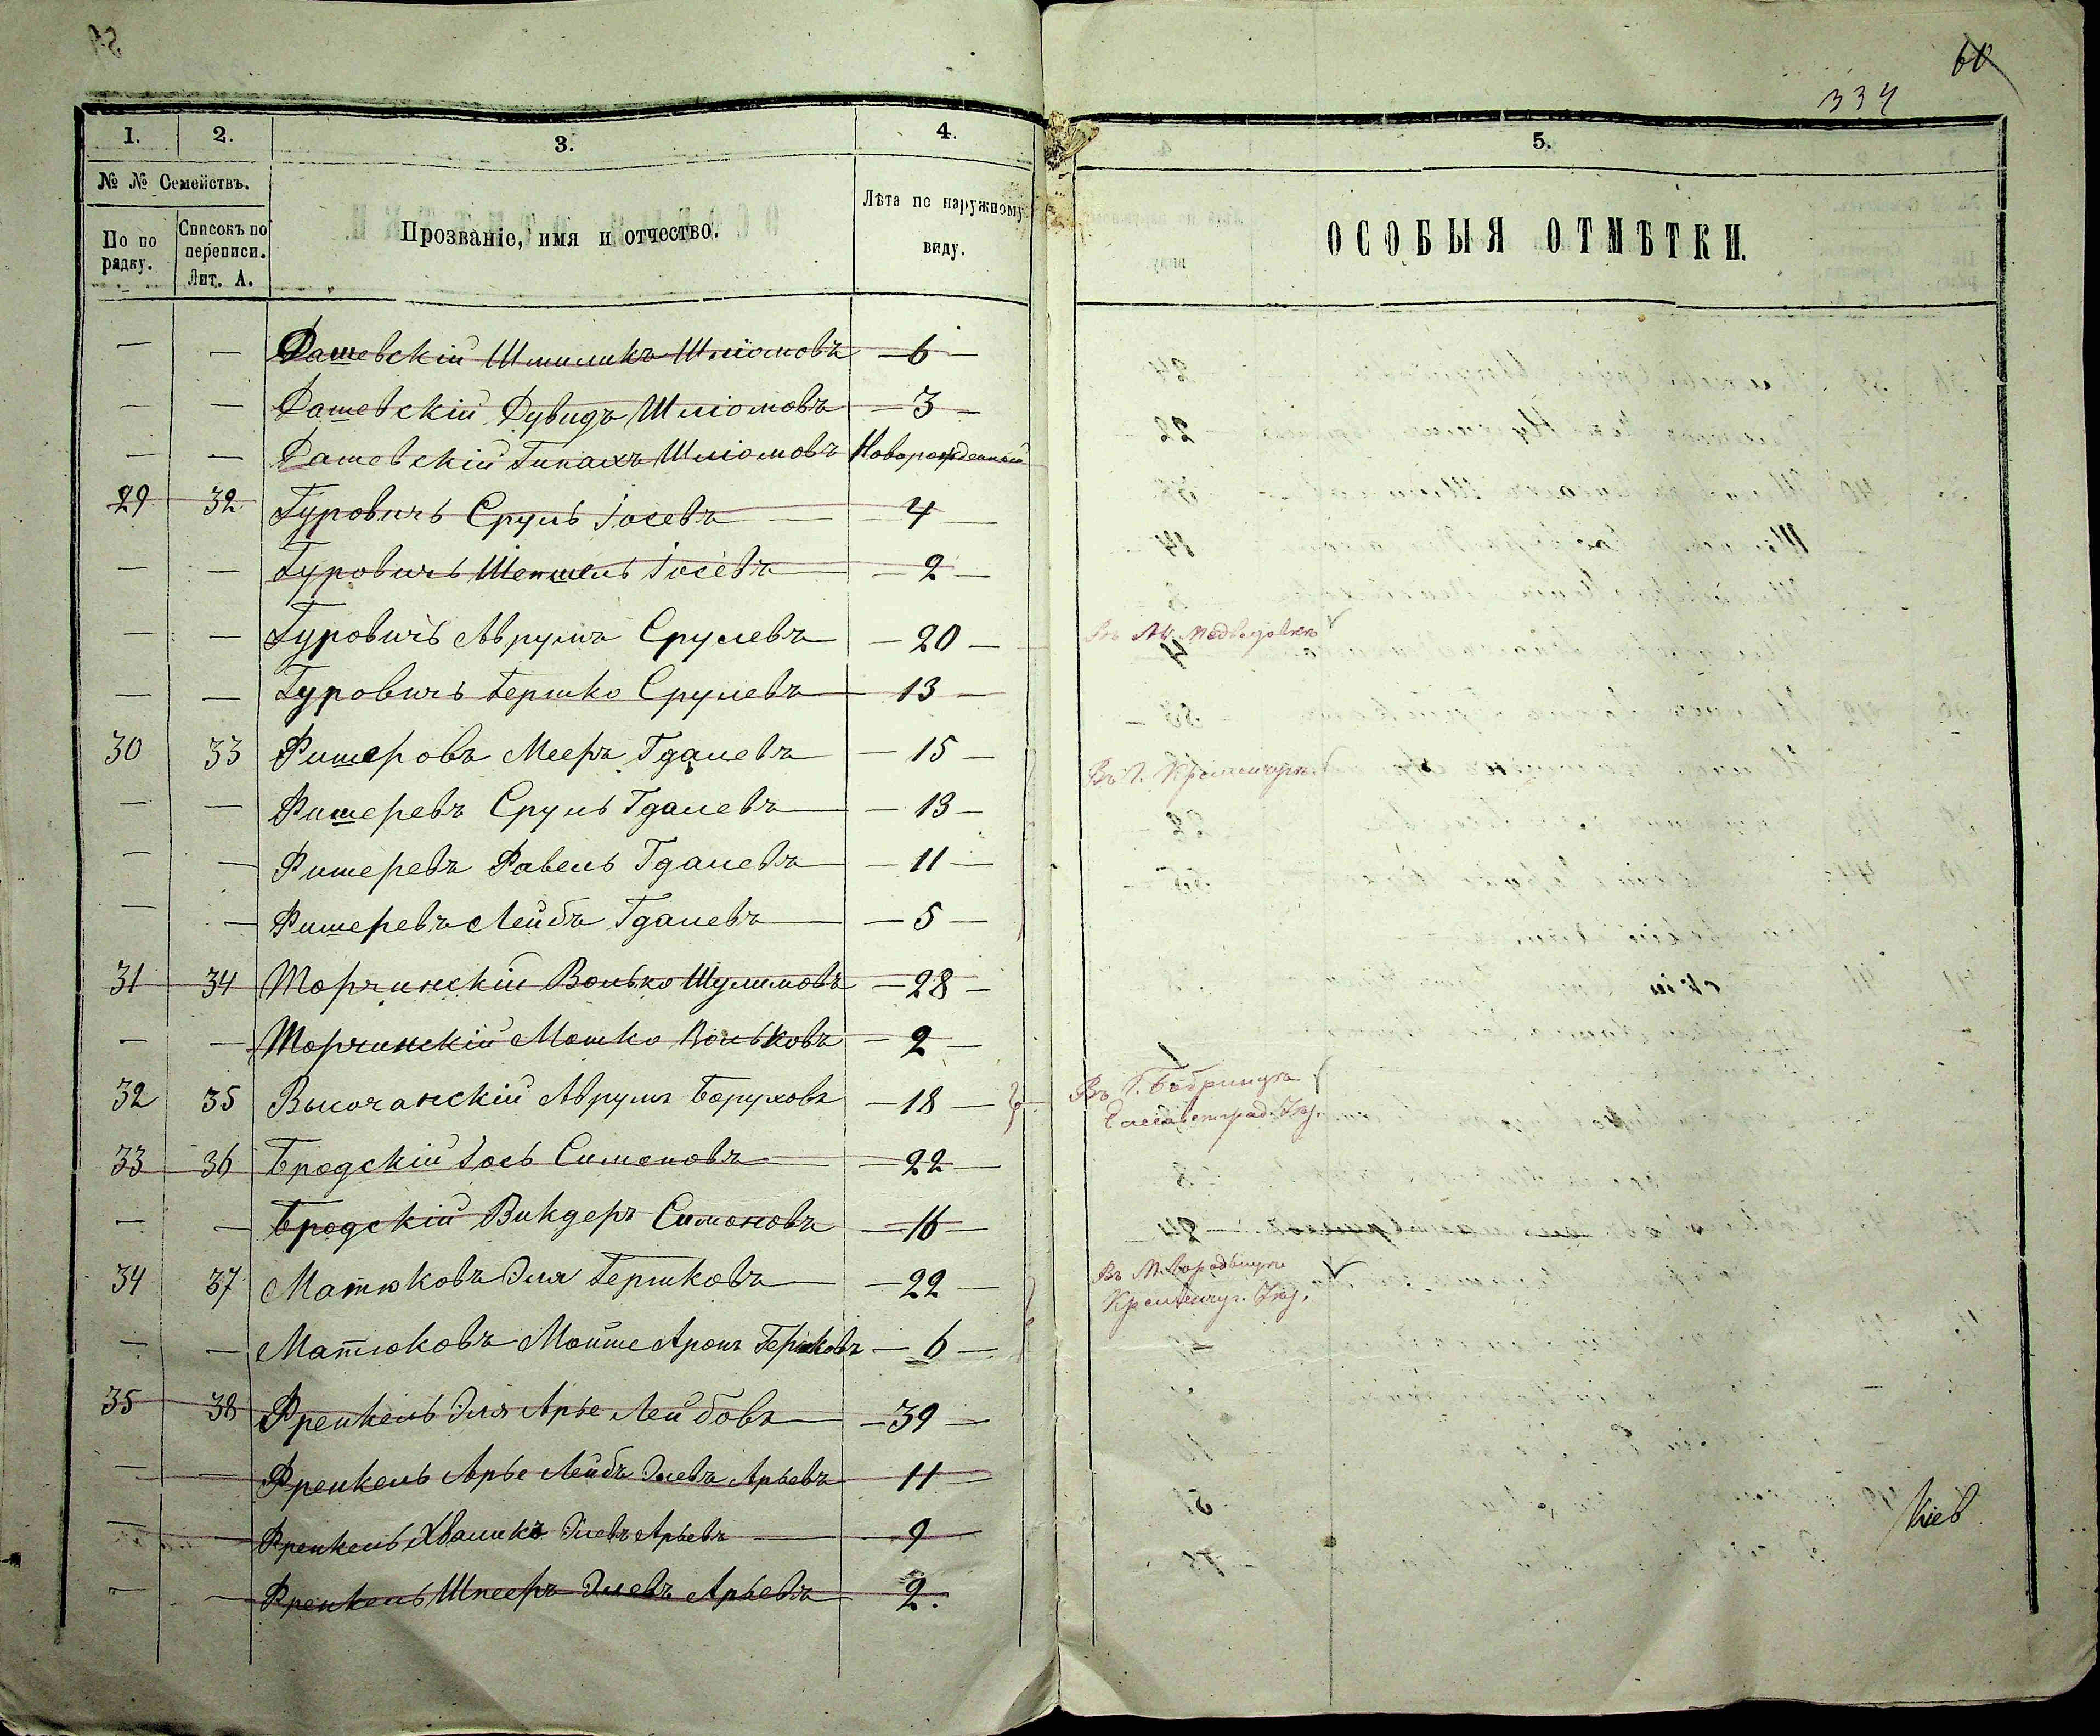 60
334
1. 2. 3. 4. 5.
№ № Семействъ.
По по рядку.
Списокъ по переписи. Лит. А.
Прозваніе, имя и отчество.
Лѣта по наружному виду.
ОСОБЫЯ ОТМѢТКИ.
— — Дашевскій Шмиликъ Шліомовъ — 6 —
— — Дашевскій Дувидъ Шліомовъ — 3 —
— — Дашевскій Пинахъ Шліомовъ Новорожденный
29 32 Гуровичъ Сруль Іосевъ — 4 —
— — Гуровичъ Шепшель Іосевъ — 2 —
— — Гуровичъ Аврумъ Срулевъ — 20 — Въ М. Медведовкѣ
— — Гуровичъ Гершко Срулевъ — 13 —
30 33 Фишеровъ Мееръ Гдалевъ — 15 — Въ Г. Кременчугѣ
— — Фишеревъ Сруль Гдалевъ — 13 —
— — Фишеревъ Фавель Гдалевъ — 11 —
— — Фишеревъ Лейбъ Гдалевъ — 5 —
31 34 Торчинскій Волько Шулимовъ — 28 —
— — Торчинскій Мошко Вольковъ — 2 —
32 35 Высочанскій Аврумъ Боруховъ — 18 — Въ Г. Бобринцѣ
Елисаветград. Уѣз.
33 36 Бродскій Іось Симоновъ — 22 —
— — Бродскій Викдеръ Симоновъ — 16 —
34 37 Матюковъ Эля Гершковъ — 22 — Въ М.
Кременчуг. Уѣз.
— — Матюковъ Мойше Аронъ Гершковъ — 6 —
35 38 Френкель Эля Арье Лейбовъ — 39 —
— — Френкель Арье Лейбъ Элевъ Арьевъ 11 —
— — Френкель Хваликъ Элевъ Арьевъ — 9 —
— — Френкель Шнееръ Элевъ Арьевъ 2.
Кіев